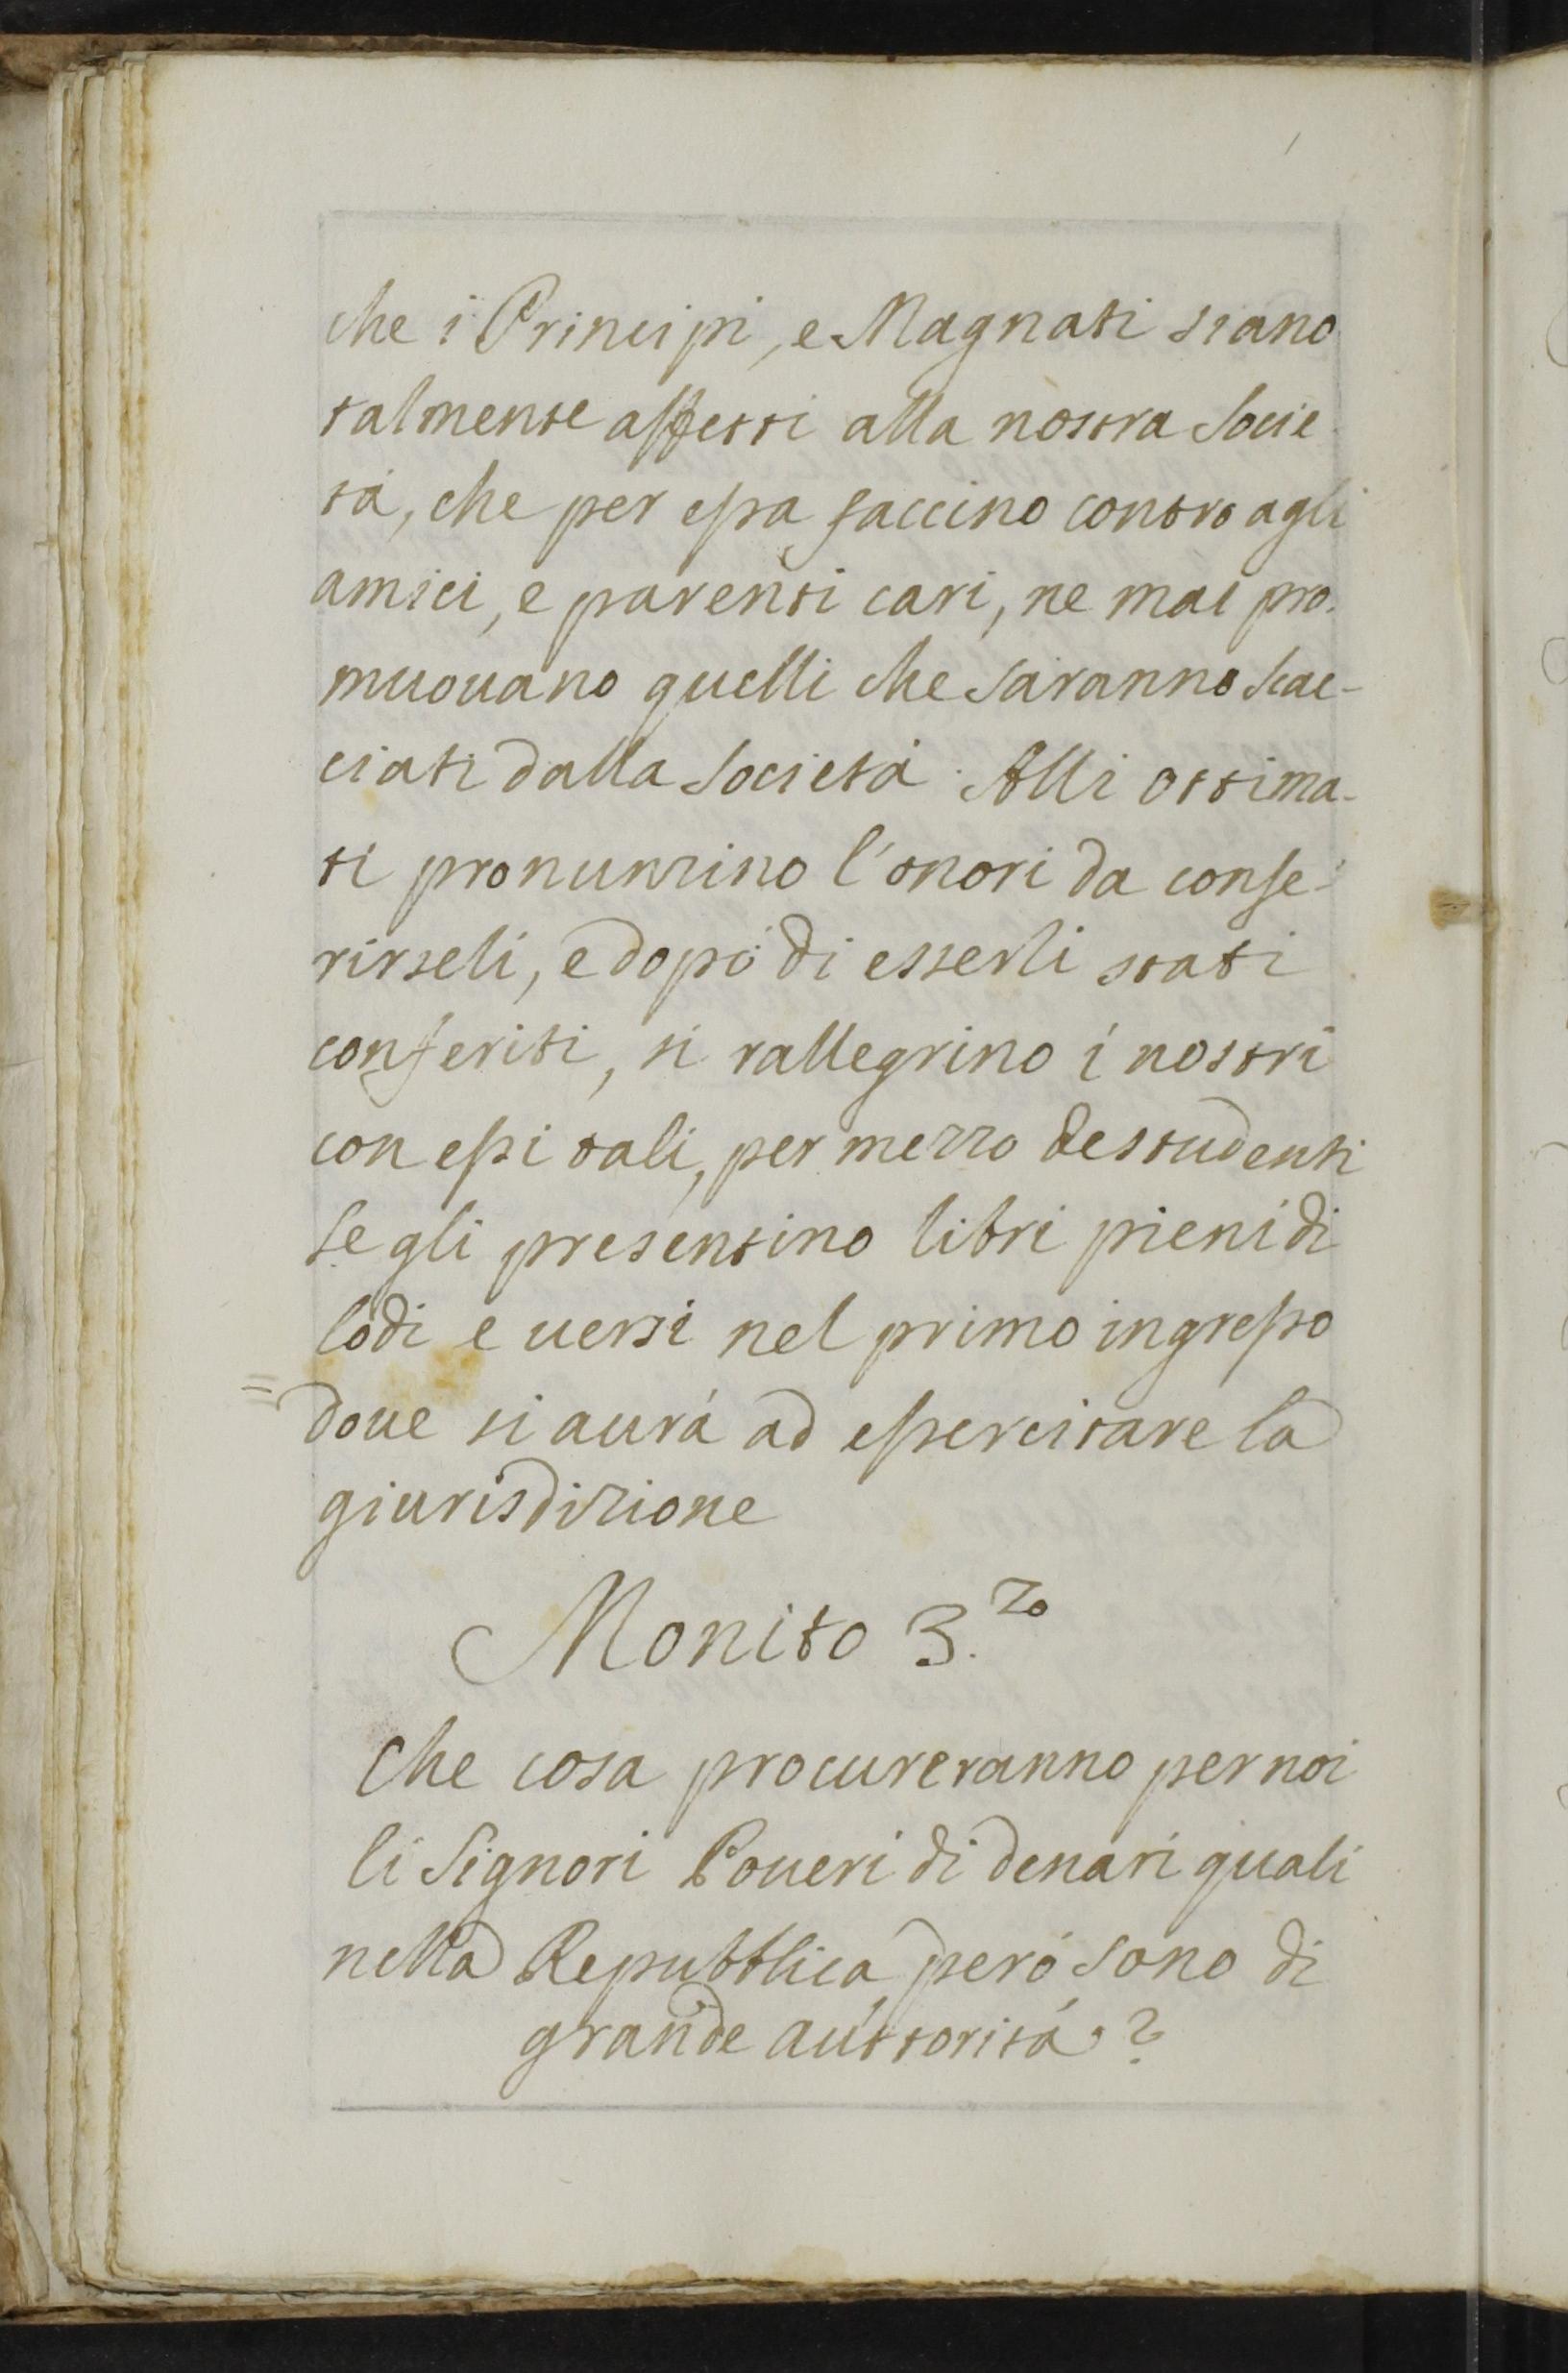 che i Principi, e Magnati siano
talmente affetti alla nostra Socie
tá, che per essa faccino contro agli
amici, e parenti cari, ne mai pro-
muouano quelli che saranno scac-
ciati dalla Societá. Alli ottima-
ti pronunzino l'onori da confe-
rirseli, e dopó di esserli stati
conferiti, si rallegrino i nostri
con essi tali, per mezzo de studenti
se gli presentino libri pieni di
lodi e uersi nel primo ingresso
= doue si aurá ad essercitare la
giurisdizione
Monito 3.zo
Che cosa procureranno per noi
li Signori Poueri di denari quali
nella Repubblica peró sono di
grande auttoritá.?